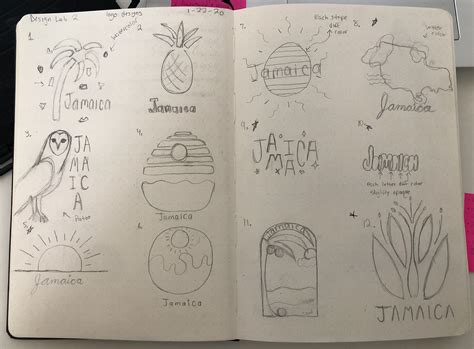 Design Lab 2
logo designs
1-22-20
1.
watercolor
Jamaica
2.
Jamaica
3.
JA
MA
I
C
A
4.
Jamaica
5.
Jamaica
6.
Jamaica
7.
Each stripe
diff
color
Jamaica
8.
water
color
Jamaica
9.
JAICA
MA
10.
Jamaica
each letter diff color
slightly opaque
11.
Jamaica
12.
JAMAICA